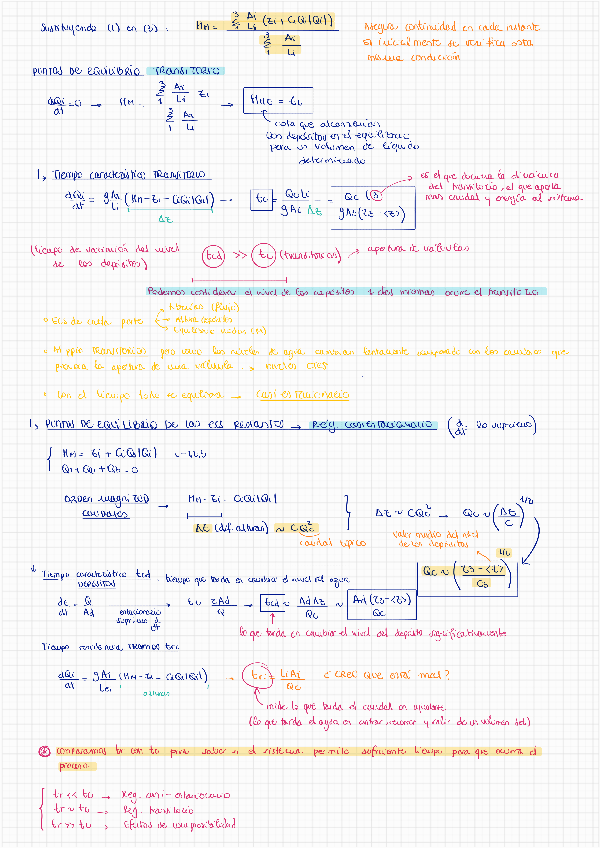 Sustituyendo (1) en (3): H_M = Σ₁³ Ai/Li (Zi + CiQi|Qi|) / Σ₁³ Ai/Li
Asegura continuidad en cada instante
si inicialmente se verifica esta
misma condición
PUNTOS DE EQUILIBRIO TRANSITORIO
dQi/dt = 0 → H_M = Σ₁³ Ai/Li Zi / Σ₁³ Ai/Li →
cota que alcanzarían
los depósitos en el equilibrio
para un volumen de líquido
determinado
1, Tiempo característico TRANSITORIO
dQi/dt = gAi/Li (H_M - Zi - CiQi|Qi|)
ΔZ
tc = QcLi / gAc ΔZ
es el que domina la dinámica
del transitorio, el que aporta
más caudal y energía al sistema.
(tiempo de variación del nivel
de los depósitos)
tcd >> tc (transitorios) → apertura de válvulas
Podemos considerar el nivel de los depósitos
ocurre el transitorio
• Ecs de cada parte
Tuberías (flujo)
• Hyp:
TRANSITORIOS
los niveles de agua cambian lentamente comparado con los cambios que
provoca la apertura de una válvula → niveles CTES
CASI ESTACIONARIO
1, PUNTOS DE EQUILIBRIO DE LAS ECS RESTANTES → Rég. casi estacionario (d/dt lo suprimo)
H_M = Zi + CiQi|Qi| i=1,2,3
Q1 + Q2 + Q3 = 0
ORDEN MAGNITUD
CAUDALES
→ H_M - Zi ~ CiQi|Qi|
ΔZ (dif. alturas) ~ CQc²
caudal típico
ΔZ ~ CQc² → Qc ~ (ΔZ/C)^1/2
valor medio del nivel
de los depósitos
Qc ~ (Z3 - <Z>/C3)^1/2
↓ Tiempo característico tcd: tiempo que tarda en cambiar el nivel del agua
DEPÓSITOS
dz/dt = Q/Ad
estacionario
suprimo d/dt
tcd ~ AdΔZ/Qc ~ Ad(Z3-<Z>)/Qc
lo que tarda en cambiar el nivel del depósito significativamente
Tiempo residencia TRAMOS tr:
dQi/dt = gAi/Li (H_M - Zi - CiQi|Qi|)
alturas
→ tr = LiAi/Qc ¿CREO QUE ESTÁ mal?
mide lo que tarda el caudal en ajustarse
(lo que tarda el agua en entrar, recorrer y salir de un volumen del)
⊛ comparamos tr con tc para saber si el sistema permite suficiente tiempo para que ocurra el
proceso.
tr << tc → Reg. casi-estacionario
tr ~ tc → Reg. transitorio
tr >> tc → Efectos de compresibilidad